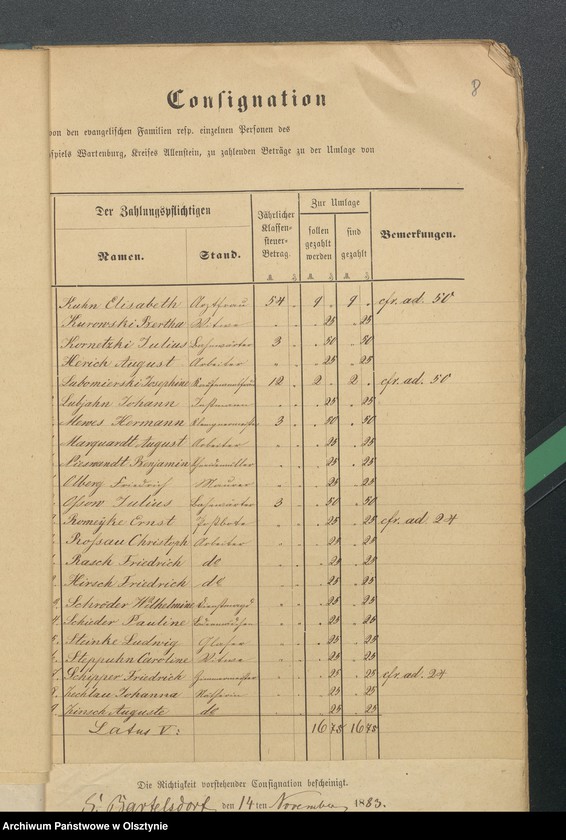 8
Consignation
von den evangelischen Familien resp. einzelnen Personen des
spiels Wartenburg, Kreises Allenstein, zu zahlenden Beträge zu der Umlage von
Der Zahlungspflichtigen
Jährlicher Klassen-steuer-Betrag.
Zur Umlage
Bemerkungen.
Namen.
Stand.
sollen gezahlt werden
sind gezahlt
Kuhn Elisabeth Arztfrau 54 . 9 . 9 . cfr. ad. 50
Kurowski Bertha Witwe . . . 25 . 25
Kornetzki Julius Bahnwärter 3 . . 50 . 50
Herich August Arbeiter . . . 25 . 25
Lubomierski Josephine 12 . 2 . 2 . cfr. ad. 50
Lubjahn Johann Instmann . . . 25 . 25
Mewes Hermann Klempnermeister 3 . . 50 . 50
Marquardt August Arbeiter . . . 25 . 25
Benjamin . . . 25 . 25
Olberg Friedrich Maurer . . . 25 . 25
Ossow Julius Bahnwärter 3 . . 50 . 50
Romeyke Ernst Postbote . . . 25 . 25 cfr. ad 24
Rossau Christoph Arbeiter . . . 25 . 25
Rasch Friedrich do . . . 25 . 25
Hirsch Friedrich do . . . 25 . 25
Schröder Wilhelmine Dienstmagd . . . 25 . 25
Schieder Pauline . . . 25 . 25
Steinke Ludwig Glaser . . . 25 . 25
Steppuhn Caroline Witwe . . . 25 . 25
Schipper Friedrich . . . 25 . 25 cfr. ad. 24
Zechlau Johanna . . . 25 . 25
Zinsch Auguste do . . . 25 . 25
Latus V: 16 75 16 75
Die Richtigkeit vorstehender Consignation bescheinigt.
Bartelsdorf, den 14ten November 1883.
Archiwum Państwowe w Olsztynie